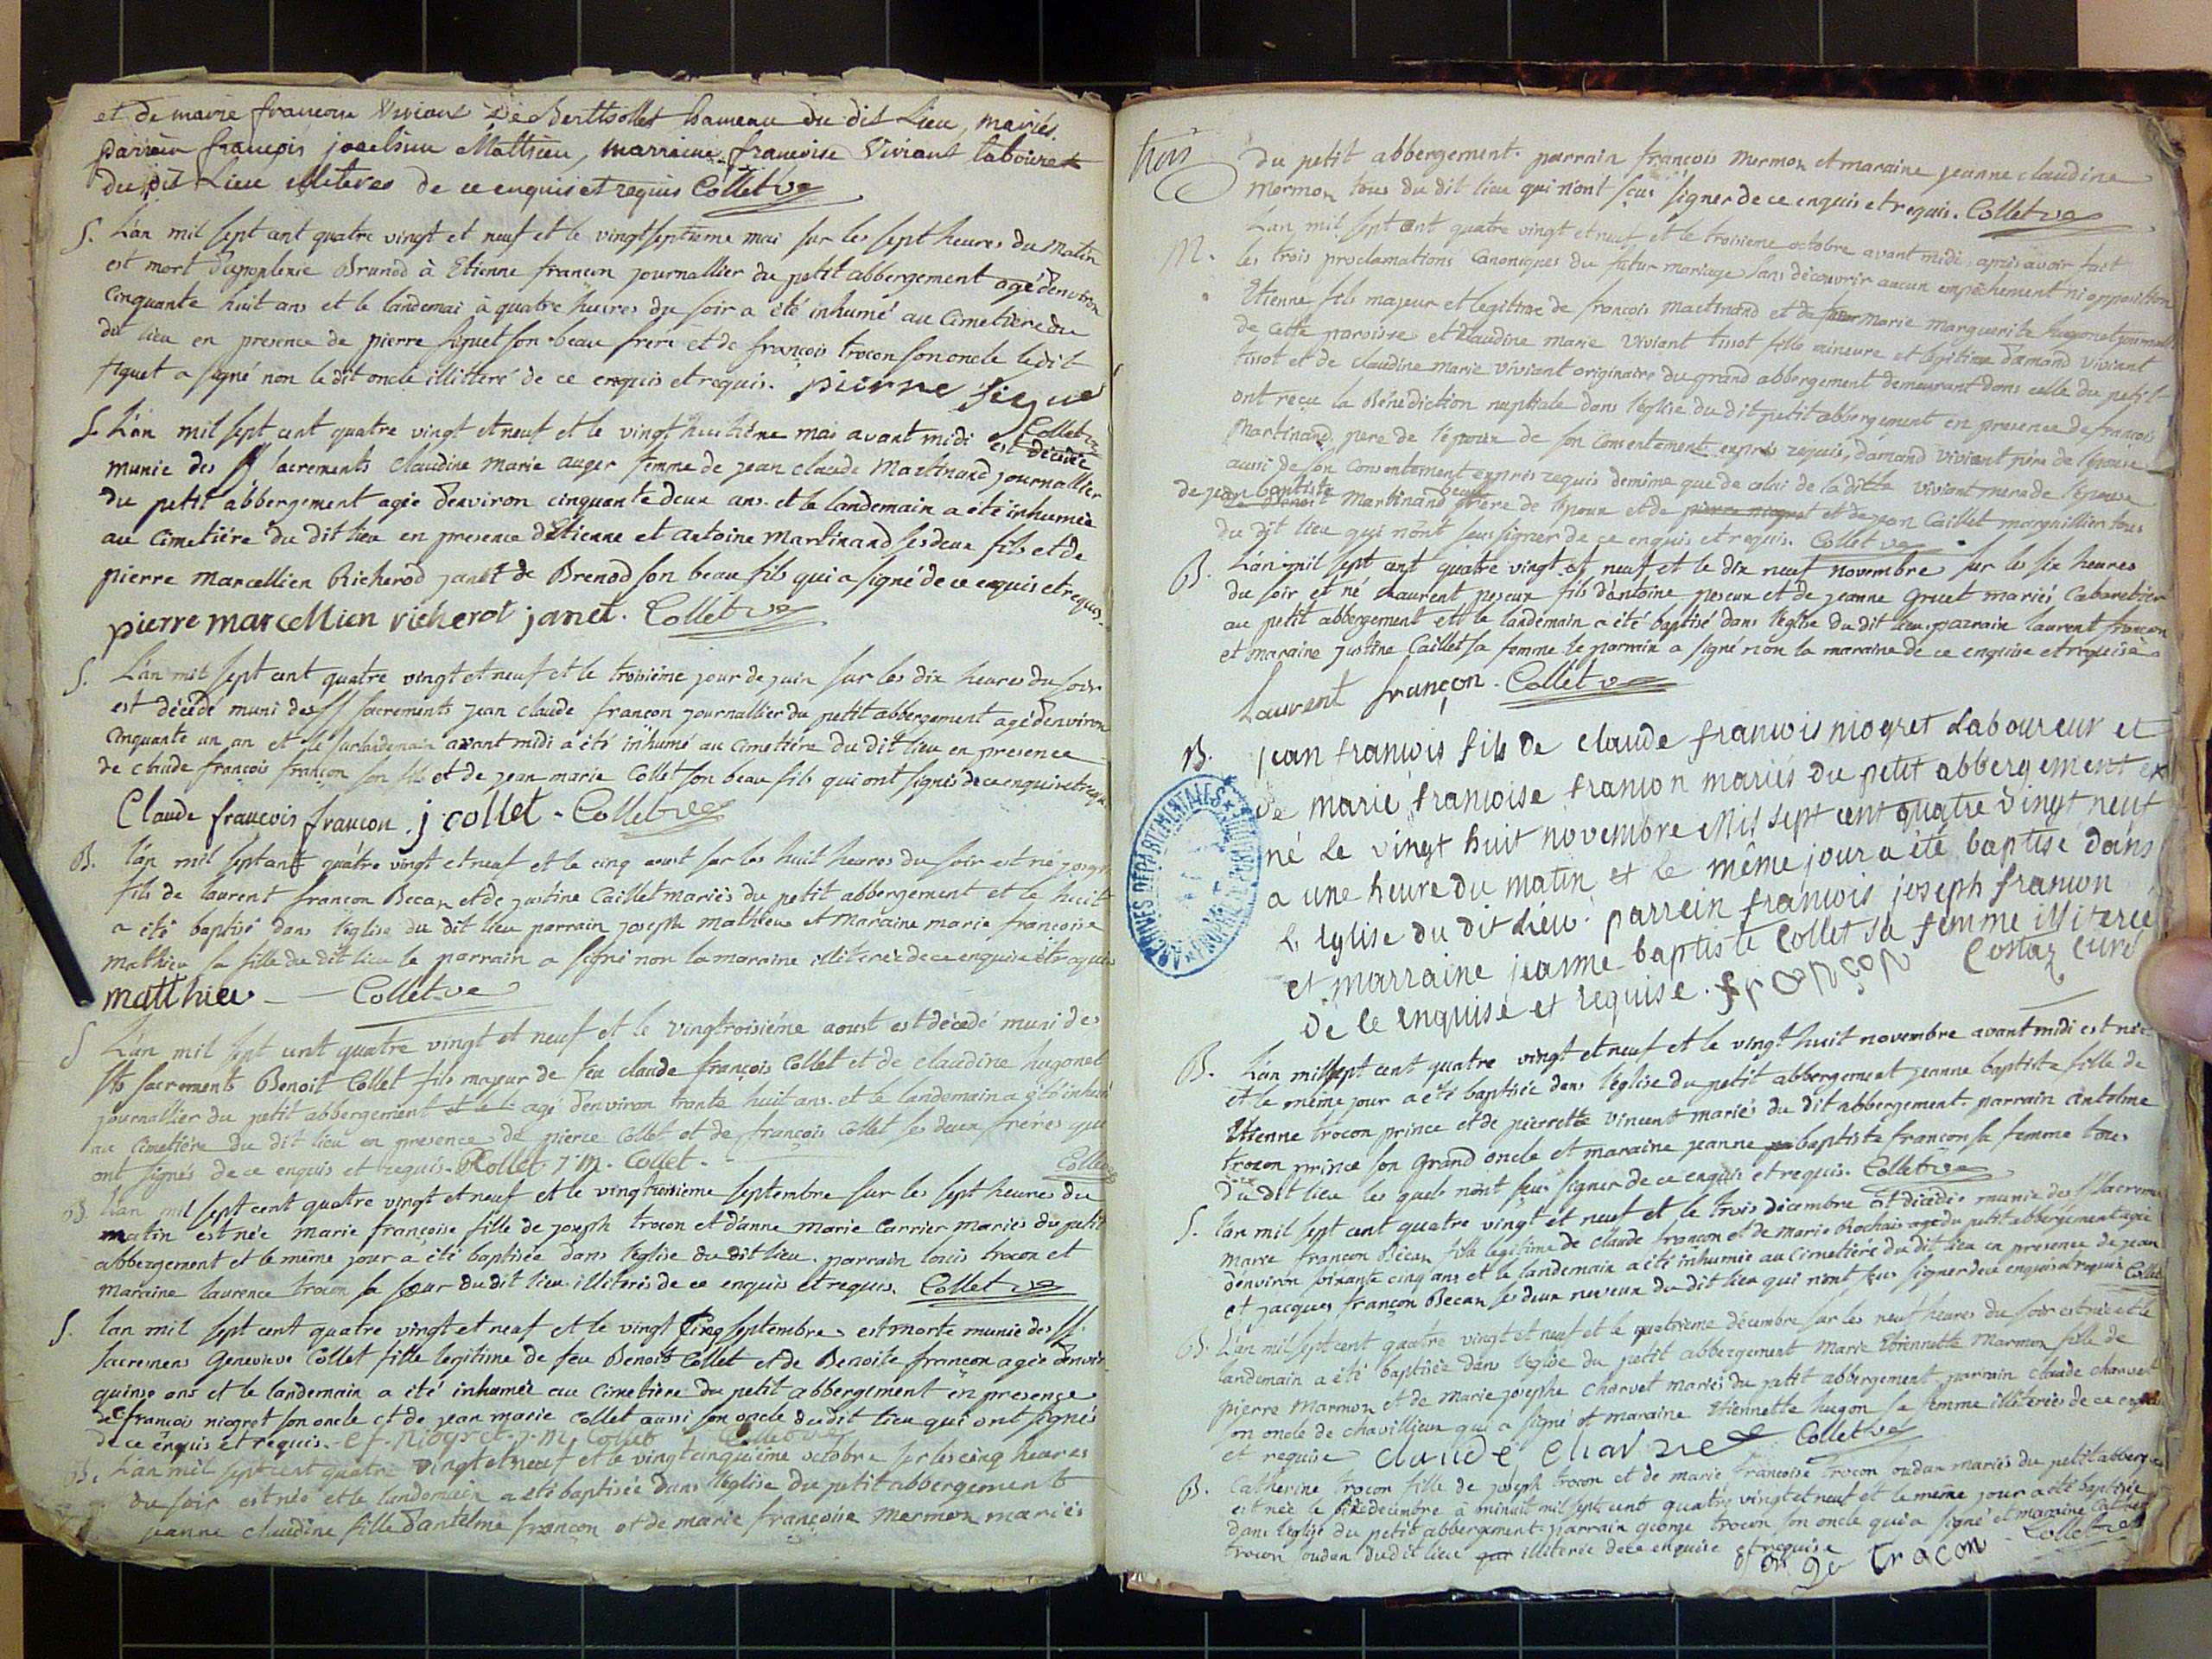 et de marie francoise Viviant De Berthollet hameau du dit Lieu, mariés.
parrain françois joachim Mathieu, marraine francoise Viviant
du dit Lieu illiteres de ce enquis et requis Collet vre
S. L'an mil sept cent quatre vingt et neuf et le vingtseptieme mai sur les sept heures du matin
est mort d'apoplexie Brunod à Etienne françon journallier du petit abbergement agé denviron
cinquante huit ans et le landemai à quatre heures du soir a été inhumé au Cimetiere du
dit lieu en presence de pierre siguet son beau frere et de françois trocon son oncle le dit
siguet a signé non le dit oncle illitteré de ce enquis et requis. pierre sigue
Collet vre
S. L'an mil sept cent quatre vingt et neuf et le vingt huitiéme mai avant midi est décédée
munie des SS sacrements Claudine marie auger femme de jean claude Martinand journallier
du petit abbergement agée denviron cinquante deux ans. et le landemain a été inhumée
au Cimetiére du dit lieu en presence d'Etienne et antoine Martinand ses deux fils et de
pierre marcellien Richerod janet de Brenod son beau fils qui a signé de ce enquis et requis.
pierre marcellien richerot janet. Collet vre
S. L'an mil sept cent quatre vingt et neuf et le troisiéme jour de juin sur les dix heures du soir
est décédé muni des SS sacrements jean claude françon journallier du petit abbergement agé denviron
cinquante un an et le surlandemain avant midi a été inhumé au Cimetiére du dit lieu en presence
de claude françois françon son fils et de jean marie Collet son beau fils qui ont signés de ce enquis et requis
Claude francois francon. j collet - Collet vre
B. l'an mil sept cent quatre vingt et neuf et le cinq aoust sur les huit heures du soir est né joseph
fils de laurent françon Becan et de justine Caillet mariés du petit abbergement et le huit
a été baptisé dans l'église du dit lieu parrain joseph mathieu et maraine marie françoise
mathieu sa fille du dit lieu le parrain a signé non la maraine illiterée de ce enquise et requise
matthieu - Collet vre
S L'an mil sept cent quatre vingt et neuf et le vingtroisiéme aoust est décédé muni des
Sts sacrements Benoit Collet fils majeur de feu claude françois Collet et de claudine hugonet
journallier du petit abbergement et le l. agé denviron trante huit ans. et le landemain a été inhumé
au Cimetiére du dit lieu en presence de pierre Collet et de françois Collet ses deux fréres qui
ont signés de ce enquis et requis. PCollet j. m. Collet. - Collet
B. L'an mil sept cent quatre vingt et neuf et le vingtroisieme septembre sur les sept heures du
matin est née marie françoise fille de joseph trocon et d'anne marie Carrier mariés du petit
abbergement et le même jour a été baptisée dans l'église du dit lieu. parrain louis trocon et
maraine laurence trocon sa sœur du dit lieu illiterés de ce enquis et requis. Collet vre
S. l'an mil sept cent quatre vingt et neuf et le vingt cinq septembre est morte munie des SS.
sacremens Genevieve Collet fille legitime de feu Benoit Collet et de Benoite françon agée denviron
quinse ans et le landemain a été inhumée au Cimetiere du petit abbergement en presence
de françois niogret son oncle et de jean marie Collet aussi son oncle du dit lieu qui ont signés
de ce enquis et requis. - c f. niogret. j. m. Collet Collet vre
B. L'an mil sept cent quatre vingt et neuf et le vingt cinquiéme octobre sur les cinq heures
du soir est née et le landemain a été baptisée dans l'église du petit abbergement
jeanne claudine fille d'antelme françon et de marie françoise Mermon mariés
trois
du petit abbergement. parrain françois mermon et maraine jeanne claudine
mermon tous du dit lieu qui n'ont sçus signer de ce enquis et requis. Collet vre
L'an mil sept cent quatre vingt et neuf et le troisieme octobre avant midi apres avoir fait
M. les trois proclamations Canoniques du futur mariage sans découvrir aucun empêchement ni opposition
Etienne fils majeur et legitime de françois Martinand et de marie marguerite hugonet journallier
de cette paroisse et claudine marie Viviant tissot fille mineure et legitime d'amand Viviant
tissot et de claudine marie viviant originaire du grand abbergement demeurant dans celle du petit
ont reçu la Bénédiction nuptiale dans l'église du dit petit abbergement en presence de francois
Martinand pere de l'époux de son Consentement exprès requis, d'amand viviant pére de l'épouse
aussi de son Consentement exprès requis demême que de celui de la ditte viviant mere de l'épouse
de jean baptiste Martinand frere de l'époux et de pierre niogret et de jean Caillet margnillier tous
du dit lieu qui n'ont sçus signer de ce enquis et requis. Collet vre
B. L'an mil sept cent quatre vingt et neuf et le dix neuf novembre sur les six heures
du soir et né Laurent peseux fils d'antoine peseux et de jeanne Gruet mariés Cabaretier
au petit abbergement et le landemain a été baptisé dans l'église du dit lieu. parrain laurent françon
et maraine justine Caillet sa femme le parrain a signé non la maraine de ce enquise et requise
Laurent françon. Collet vre
B. jean francois fils de claude francois niogret Laboureur et
de marie francoise francon mariés du petit abbergement est
né le vingt huit novembre Mil sept cent quatre vingt neuf
a une heure du matin et le même jour a été baptisé dans
L'eglise du dit Lieu. parrein francois joseph francon
et marraine jeanne baptiste Collet sa femme illiteree
de ce enquise et requise. françon Costaz curé
B. L'an mil sept cent quatre vingt et neuf et le vingt huit novembre avant midi est née
et le même jour a été baptisée dans l'église du petit abbergement jeanne baptiste fille de
Etienne trocon prince et de pierrette vincent mariés du dit abbergement parrain antelme
trocon prince son grand oncle et maraine jeanne baptiste françon sa femme tous
du dit lieu les quels n'ont sçus signer de ce enquis et requis. Collet vre
S. l'an mil sept cent quatre vingt et neuf et le trois décembre est décédée munie des SS sacremens
marie françon Bécan fille legitime de claude francon et de marie Rochais du petit abbergement agée
denviron soixante cinq ans et le landemain a été inhumée au Cimetiére du dit lieu en presence de jean
et jacques françon Becan ses deux neveux du dit lieu qui n'ont sçus signer de ce enquis et requis Collet
B. L'an mil sept cent quatre vingt et neuf et le quatrieme décembre sur les neuf heures du soir est née et le
landemain a été baptisée dans l'église du petit abbergement Marie Etiennette Marmon fille de
pierre Marmon et de marie josephe Charvet mariés du petit abbergement parrain claude charvet
son oncle de chavillieu qui a signé et maraine Etiennette hugon sa femme illiterée de ce enquise
et requise Claude Charvet Collet vre
B. Catherine trocon fille de joseph trocon et de marie francoise trocon oudan mariés du petit abbergement
est née le décembre à minuit mil sept cent quatre vingt et neuf et le même jour a été baptisée
dans l'église du petit abbergement. parrain george trocon son oncle qui a signé et maraine Catherine
trocon oudan du dit lieu illiterée de ce enquise et requise Collet vre
george tracon